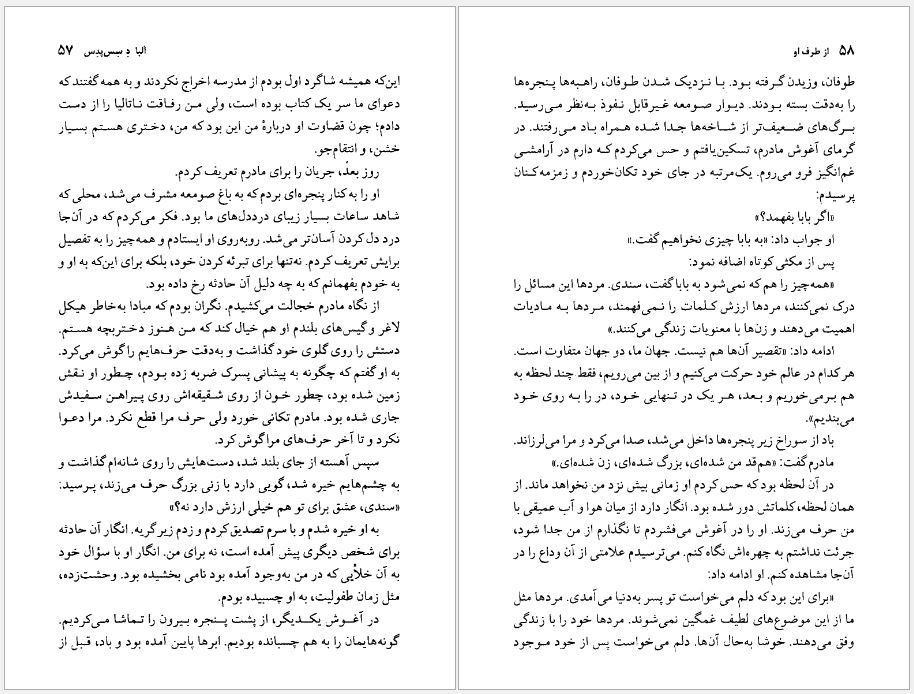 آلبا دِ سِس‌پِدِس ۵۷
این‌که همیشه شاگرد اول بودم از مدرسه اخراج نکردند و به همه گفتند که
دعوای ما سر یک کتاب بوده است، ولی من رفاقت ناتالیا را از دست
دادم؛ چون قضاوت او دربارهٔ من این بود که من، دختری هستم بسیار
خشن، و انتقام‌جو.
روز بعد، جریان را برای مادرم تعریف کردم.
او را به کنار پنجره‌ای بردم که به باغ صومعه مشرف می‌شد، محلی که
شاهد ساعات بسیار زیبای درددل‌های ما بود. فکر می‌کردم که در آن‌جا
درد دل کردن آسان‌تر می‌شد. روبه‌روی او ایستادم و همه‌چیز را به تفصیل
برایش تعریف کردم. نه‌تنها برای تبرئه کردن خود، بلکه برای این‌که به او و
به خودم بفهمانم که به چه دلیل آن حادثه رخ داده بود.
از نگاه مادرم خجالت می‌کشیدم. نگران بودم که مبادا به‌خاطر هیکل
لاغر و گیس‌های بلندم او هم خیال کند که من هنوز دختربچه هستم.
دستش را روی گلوی خود گذاشت و به‌دقت حرف‌هایم را گوش می‌کرد.
به او گفتم که چگونه به پیشانی پسرک ضربه زده بودم، چطور او نقش
زمین شده بود، چطور خون از روی شقیقه‌اش روی پیراهن سفیدش
جاری شده بود. مادرم تکانی خورد ولی حرف مرا قطع نکرد. مرا دعوا
نکرد و تا آخر حرف‌های مرا گوش کرد.
سپس آهسته از جای بلند شد، دست‌هایش را روی شانه‌ام گذاشت و
به چشم‌هایم خیره شد، گویی دارد با زنی بزرگ حرف می‌زند، پرسید:
«سندی، عشق برای تو هم خیلی ارزش دارد نه؟»
به او خیره شدم و با سرم تصدیق کردم و زدم زیر گریه. انگار آن حادثه
برای شخص دیگری پیش آمده است، نه برای من. انگار او با سؤال خود
به آن خلأیی که در من به‌وجود آمده بود نامی بخشیده بود. وحشت‌زده،
مثل زمان طفولیت، به او چسبیده بودم.
در آغوش یکدیگر، از پشت پنجره بیرون را تماشا می‌کردیم.
گونه‌هایمان را به هم چسبانده بودیم. ابرها پایین آمده بود و باد، قبل از
۵۸ از طرف او
طوفان، وزیدن گرفته بود. با نزدیک شدن طوفان، راهبه‌ها پنجره‌ها
را به‌دقت بسته بودند. دیوار صومعه غیرقابل نفوذ به‌نظر می‌رسید.
برگ‌های ضعیف‌تر از شاخه‌ها جدا شده همراه باد می‌رفتند. در
گرمای آغوش مادرم، تسکین‌یافتم و حس می‌کردم که دارم در آرامشی
غم‌انگیز فرو می‌روم. یک‌مرتبه در جای خود تکان‌خوردم و زمزمه‌کنان
پرسیدم:
«اگر بابا بفهمد؟»
او جواب داد: «به بابا چیزی نخواهیم گفت.»
پس از مکثی کوتاه اضافه نمود:
«همه‌چیز را هم که نمی‌شود به باباگفت، سندی. مردها این مسائل را
درک نمی‌کنند، مردها ارزش کلمات را نمی‌فهمند، مردها به مادیات
اهمیت می‌دهند و زن‌ها با معنویات زندگی می‌کنند.»
ادامه داد: «تقصیر آن‌ها هم نیست. جهان ما، دو جهان متفاوت است.
هر کدام در عالم خود حرکت می‌کنیم و از بین می‌رویم، فقط چند لحظه به
هم برمی‌خوریم و بعد، هر یک در تنهایی خود، در را به روی خود
می‌بندیم».
باد از سوراخ زیر پنجره‌ها داخل می‌شد، صدا می‌کرد و مرا می‌لرزاند.
مادرم گفت: «هم‌قد من شده‌ای، بزرگ شده‌ای، زن شده‌ای.»
در آن لحظه بود که حس کردم او زمانی بیش نزد من نخواهد ماند. از
همان لحظه، کلماتش دور شده بود. انگار دارد از میان هوا و آب عمیقی با
من حرف می‌زند. او را در آغوش می‌فشردم تا نگذارم از من جدا شود،
جرئت نداشتم به چهره‌اش نگاه کنم. می‌ترسیدم علامتی از آن وداع را در
آن‌جا مشاهده کنم. او ادامه داد:
«برای این بود که دلم می‌خواست تو پسر به‌دنیا می‌آمدی. مردها مثل
ما از این موضوع‌های لطیف غمگین نمی‌شوند. مردها خود را با زندگی
وفق می‌دهند. خوشا به‌حال آن‌ها. دلم می‌خواست پس از خود موجود